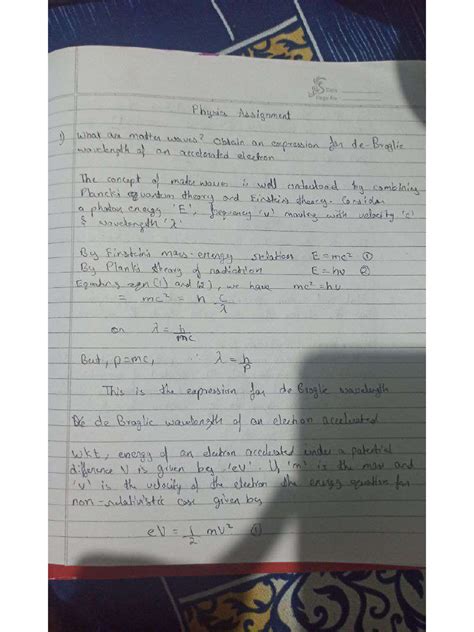 Physics Assignment
1) What are matter waves? Obtain an expression for de-Broglie
wavelength of an accelerated electron
The concept of matter waves is well understood by combining
Planck's quantum theory and Einstein's theory. Consider
a photon energy 'E', frequency 'v' moving with velocity 'c'
& wavelength 'λ'
By Einstein's mass-energy relation E = mc² ①
By Planks theory of radiation E = hv ②
Equating eqn (1) and (2), we have mc² = hv
= mc² = h c/λ
or λ = h/mc
But, p=mc, ∴ λ = h/p
This is the expression for de Broglie wavelength
De de Broglie wavelength of an electron accelerated
WKT, energy of an electron accelerated under a potential
difference V is given by 'eV'. If 'm' is the mass and
'v' is the velocity of the electron the energy equation for
non-relativistic case given by
eV = 1/2 mV² ①